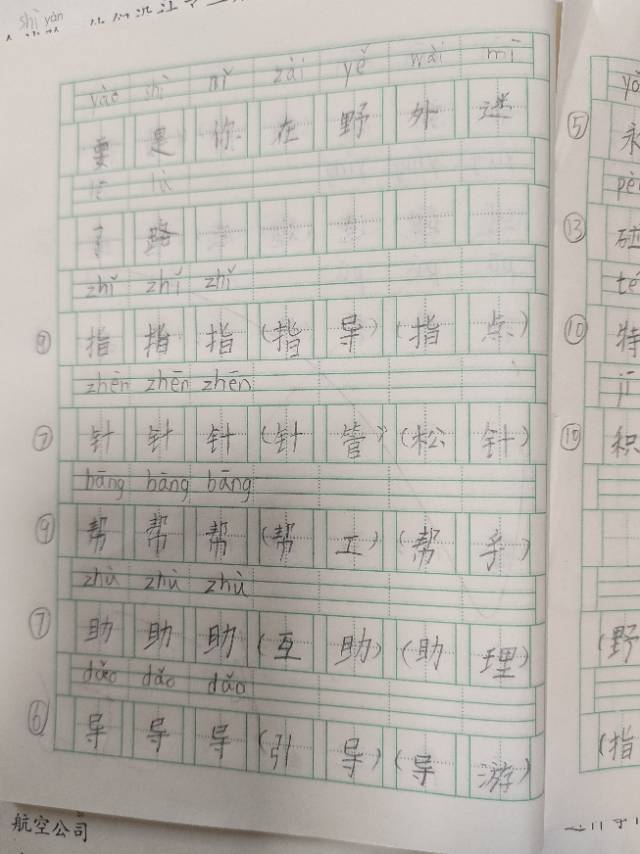 shì yàn
yào shì nǐ zài yě wài mí
要是你在野外迷
lù
了路
zhǐ zhǐ zhǐ
⑨ 指 指 指 (指导) (指点)
zhēn zhēn zhēn
⑦ 针 针 针 (针管) (松针)
bāng bāng bāng
⑨ 帮 帮 帮 (帮工) (帮手)
zhù zhù zhù
⑦ 助 助 助 (互助) (助理)
dǎo dǎo dǎo
⑥ 导 导 导 (引导) (导游)
航空公司
⑤ 永
⑬ 碰
⑩ 特
⑩ 积
(野
(指